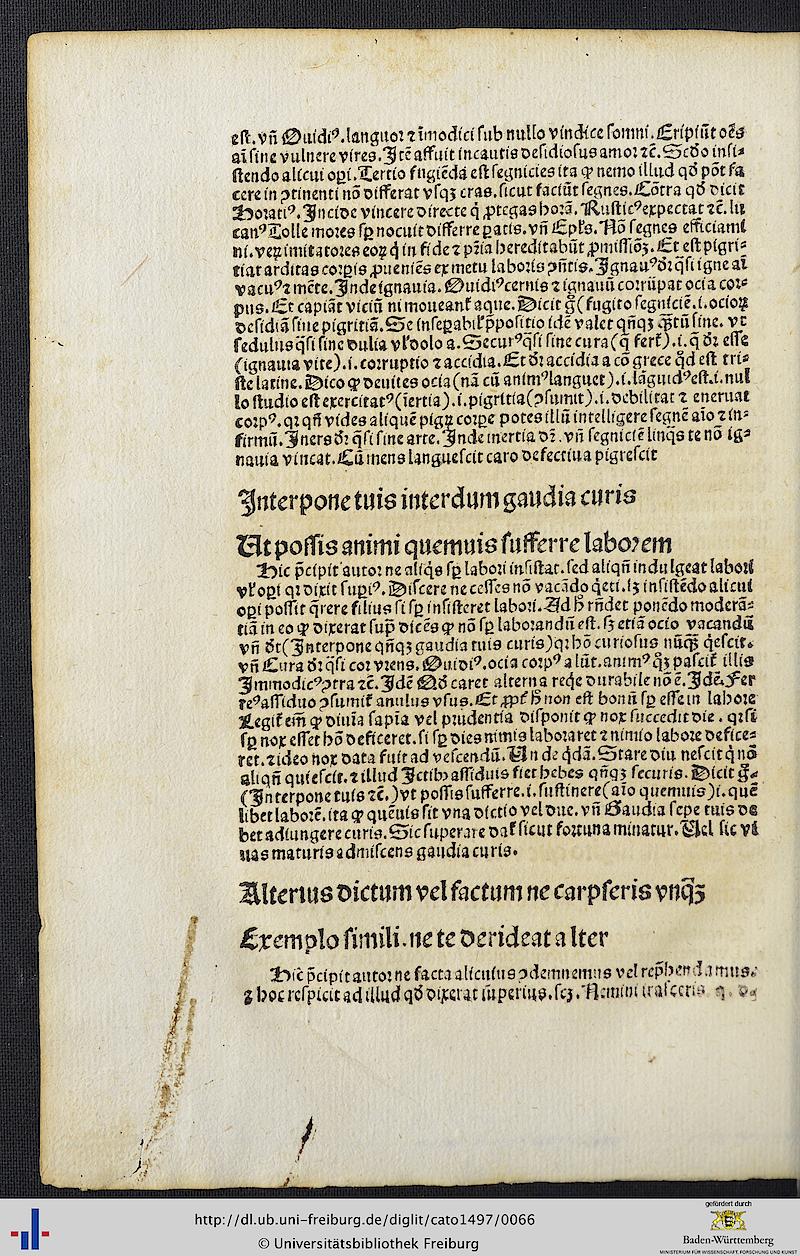 est. vñ Ouidiꝰ. languor ⁊ īmodici sub nullo vindice somni. Eripiūt oēs
aī sine vulnere vires. Itē affuit incautis desidiosus amor ⁊c̄. Scďo insi-
stendo alicui opi. Tertio fugiēda est segnicies ita ꝙ nemo illud qď pōt fa
cere in ꝯtinenti nō differat vsqꝫ cras. sicut faciūt segnes. Cōtra qď dicit
Horatiꝰ. Incide vincere directe q̇ ꝓtegas horā. Rusticꝰ expectat ⁊c̄. lu
canꝰ Tolle mores sꝑ nocuit differre ꝑatis. vñ Epl̄s. Nō segnes efficiami
ni. veꝝ imitatores eoꝝ q̇ in fide ⁊ pr̄ia hereditabūt ꝓmissiōꝫ. Et est pigri-
tia tarditas corꝑis ꝓueniēs ex metu laboris ꝯñtis. Ignauꝰ dr̄ q̄si igne aī
vacuꝰ ⁊ mēte. Inde ignauia. Ouidiꝰ cernis ⁊ ignauū corrūpat ocia cor-
pus. Et capiāt viciū ni moueant̄ aque. Dicit g̊ (fugito segniciē. i. ocioꝝ
desidiā siue pigritiā. Se inseꝑabil̓ p̄positio idē valet qn̄qꝫ qꝫtū sine. vt
sedulus q̄si sine dulia vl̓ dolo a. Securꝰ q̄si sine cura (q̄ fert̄). i. q̄ dr̄ esse
(ignauia vite). i. corruptio ⁊ accidia. Et dr̄ accidia a cō grece qď est tri-
ste latine. Dico ꝙ deuites ocia (nā cū animꝰ languet). i. lāguidꝰ est. i. nul
lo studio est exercitatꝰ (īertia). i. pigritia (ꝯsumit). i. debilitat ⁊ eneruat
corpꝰ. qr qn̄ vides aliquē pigꝝ corꝑe potes illū intelligere segnē aīo ⁊ in-
firmū. Iners dr̄ q̄si sine arte. Inde inertia dr̄. vñ segniciē linq̄s te nō ig-
nauia vincat. Cū mens languescit caro defectiua pigrescit
Interpone tuis interdum gaudia curis
Ut possis animi quemuis sufferre laborem
Hic p̄cipit autor ne aliq̇s sꝑ labori insistat. sed aliqn̄ indulgeat labori
vl̓ opi qr dixit supiꝰ. Discere ne cesses nō vacādo q̇eti. lꝫ insistēdo alicui
opi possit q̄rere filius si sꝑ insisteret labori. Ad h̄ rn̄det ponēdo moderā-
tiā in eo ꝙ dixerat sup̄ dicēs ꝙ nō sꝑ laborandū est. sꝫ etiā ocio vacandū
vñ dt̄ (Interpone qn̄qꝫ gaudia tuis curis) qr hō curiosus nūq̄ꝫ q̇escit.
vñ Cura dr̄ q̄si cor vrens. Ouidiꝰ. ocia corpꝰ alūt. animꝰ q̄ꝫ pascit̄ illis
Immodicꝰ ꝯtra ⁊c̄. Idē Qď caret alterna reqe durabile nō ē. Idē. Fer
reꝰ assiduo ꝯsumit̄ anulus vsus. Et ꝓpt̄ h̄ non est bonū sꝑ esse in labore
Legit̄ em̄ ꝙ diuīa sapīa vel prudentia disponit ꝙ nox succedit die. qr si
sꝑ nox esset hō deficeret. si sꝑ dies nimis laboraret ⁊ nimio labore defice-
ret. ⁊ ideo nox data fuit ad vescendū. Un de q̇dā. Stare diu nescit q̇ nō
aliqn̄ quiescit. ⁊ illud Ictibꝰ assiduis fiet hebes qn̄qꝫ securis. Dicit g̊-
(Interpone tuis ⁊c̄.) vt possis sufferre. i. sustinere (aīo quemuis) i. quē
libet laborē. ita ꝙ quēuis sit vna dictio vel due. vñ Gaudia sepe tuis de
bet adiungere curis. Sic superare dat̄ sicut fortuna minatur. Uel sic vi
uas maturis admiscens gaudia curis.
Alterius dictum vel factum ne carpseris vnq̄ꝫ
Exemplo simili. ne te derideat alter
Hic p̄cipit autor ne facta alicuius ꝯdemnemus vel rep̄hendamus.
⁊ hoc respicit ad illud qď dixerat superius. scꝫ. Nemini irasceris
http://dl.ub.uni-freiburg.de/diglit/cato1497/0066
© Universitätsbibliothek Freiburg
gefördert durch
Baden-Württemberg
MINISTERIUM FÜR WISSENSCHAFT, FORSCHUNG UND KUNST